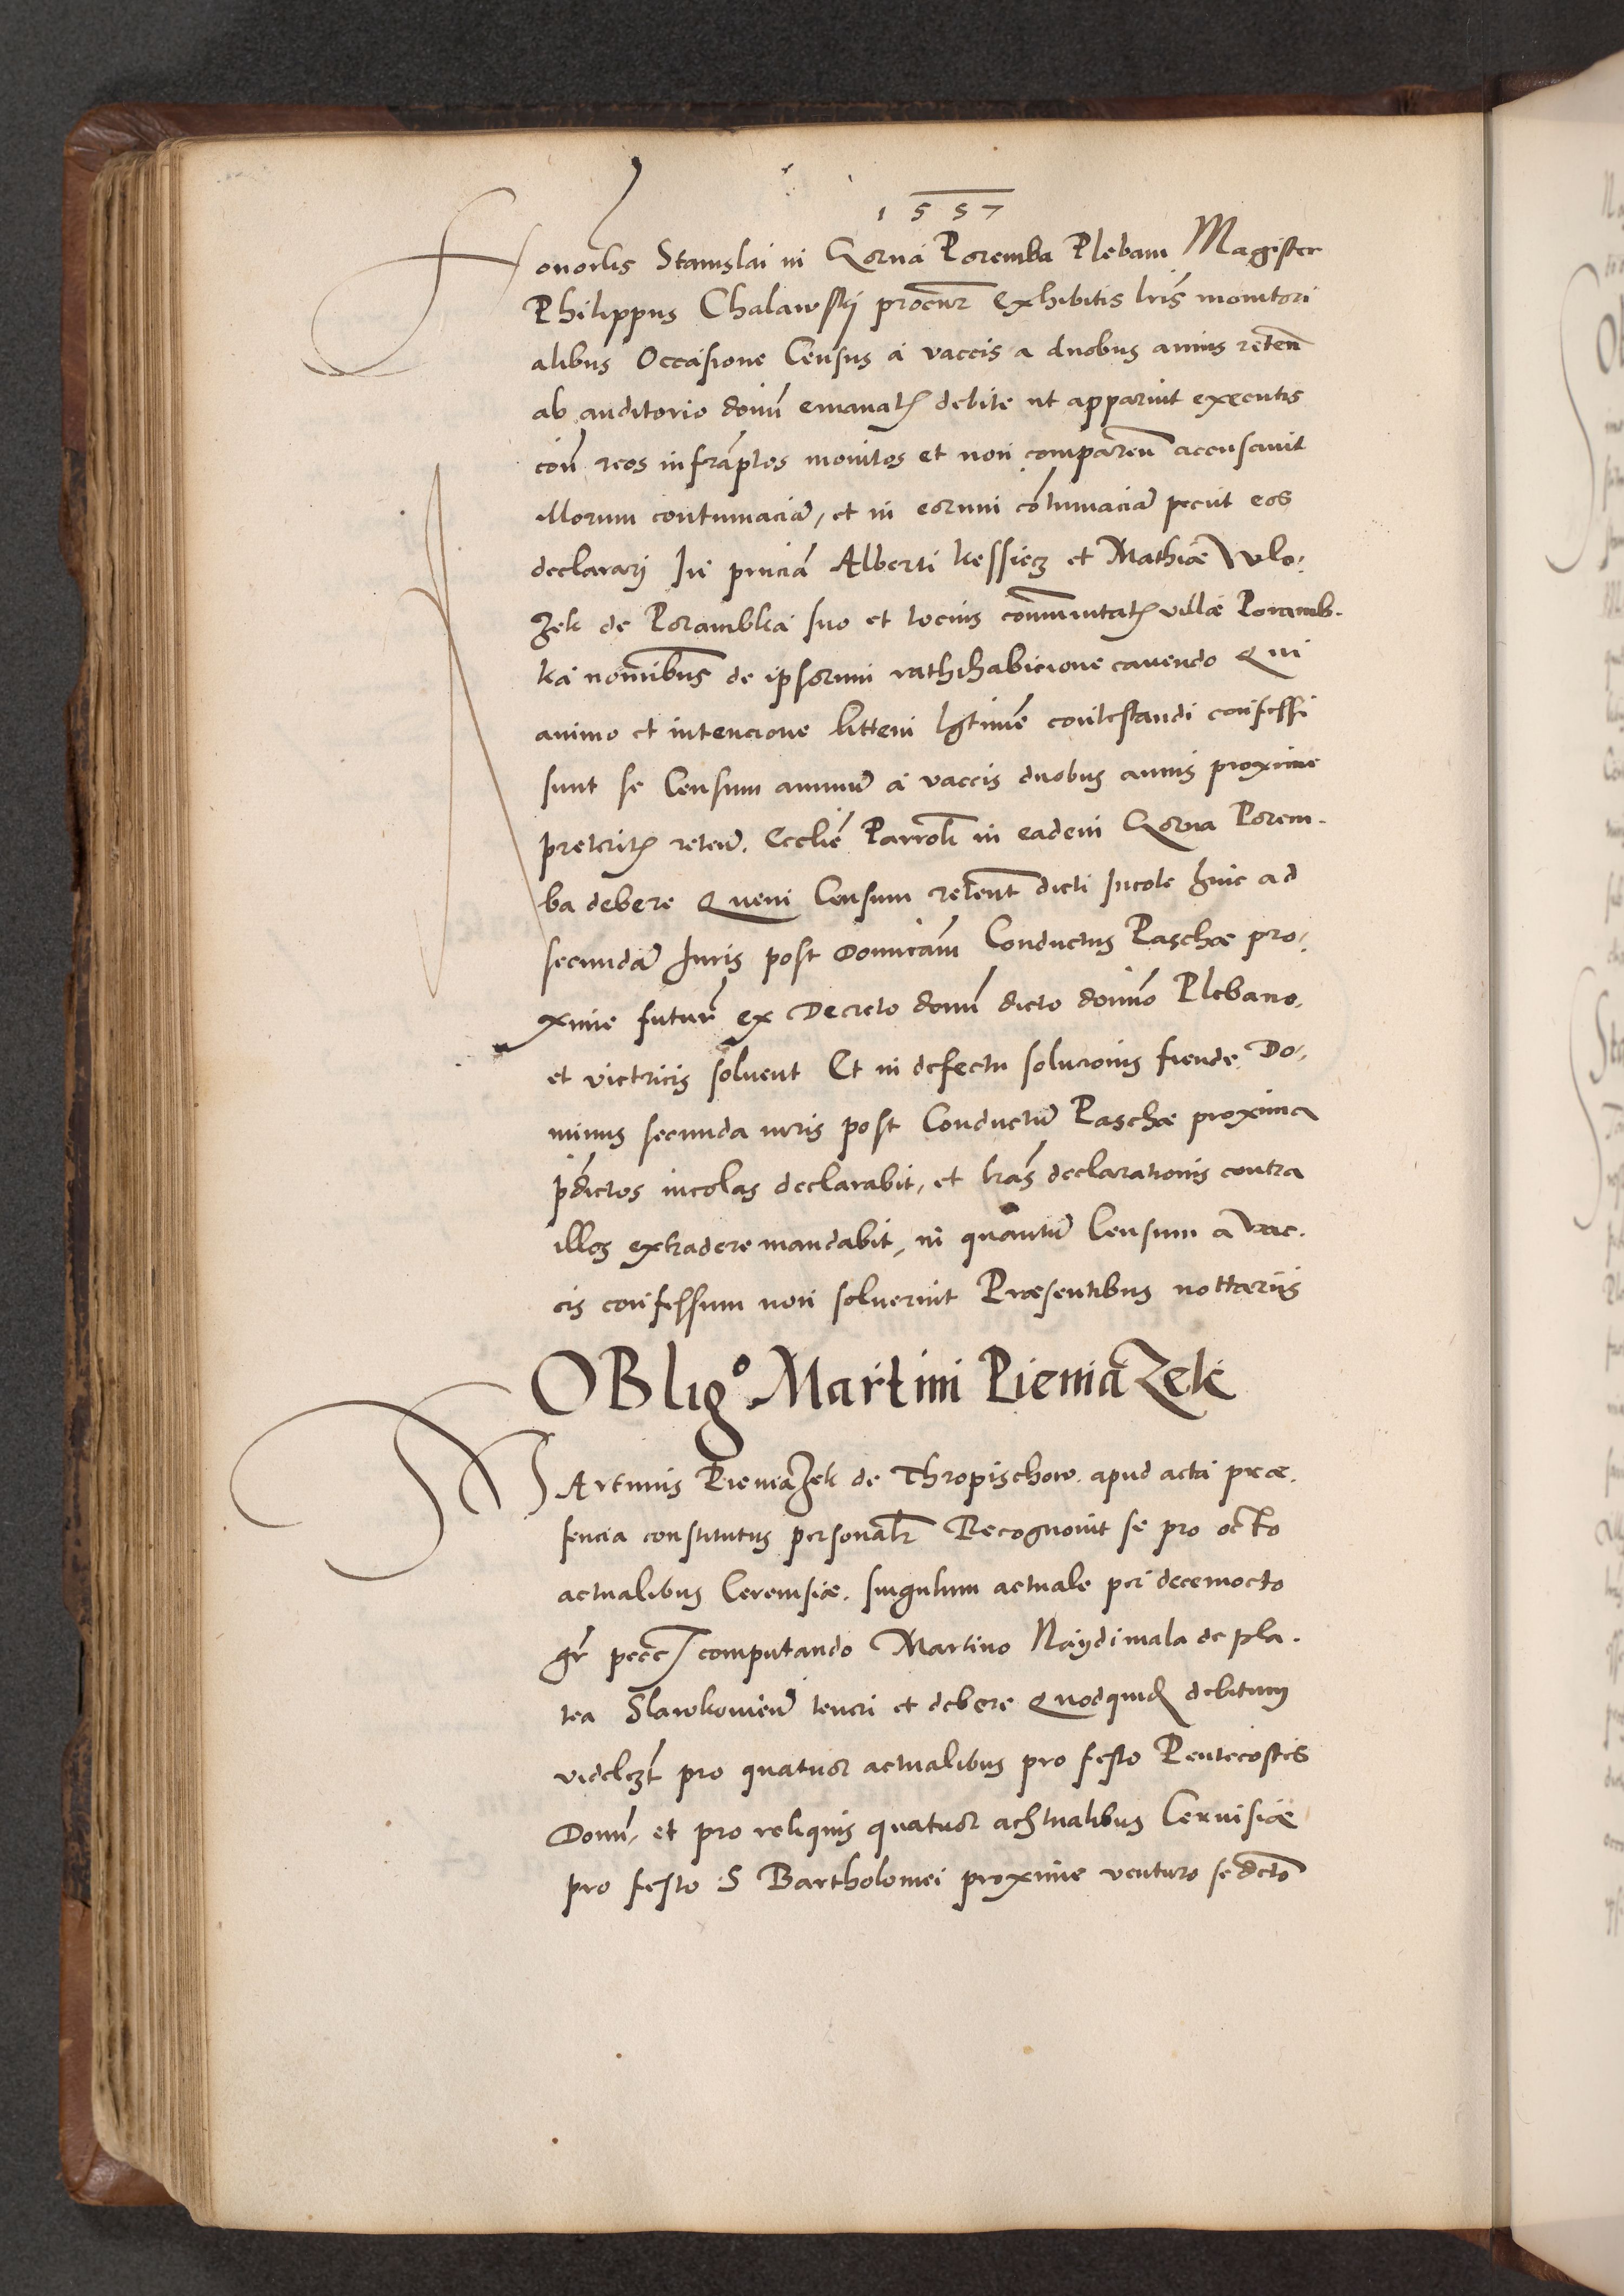 1557
Honorlis Stanislai in Gorna Poremba Plebani Magister
Philippus Chalawskj procur exhibitis lris monitori
alibus Occasione Census a vaccis a duobus annis reten
ab auditorio domi emanatis debite ut apparuit executis
con reos infrāptos monitos et non comparen accusavit
illorum contumaciā, et in eorum cōtumaciā petiit eos
declararj In pnciā Alberti kessiecz et Mathiæ Wlo:
zek de Porambka suo et tocius communitatis villæ Poramb-
ka nomibus de ipsorum rathihabicione cavendo Qui
animo et intencione littem lgtime contestandi confessi
sunt se Censum annuū a vaccis duobus annis proxime
preteritis retentū. Ecclie Parroli in eadem Gorna Porem-
ba debere Quem Censum retent dicti Incole hinc ad
secundā Iuris post Domicam Conductus Paschæ pro:
xime futur ex Decreto domi dicto domino Plebano,
et victricis solvent Et in defectu solucionis fiende Do,
minus secunda iuris post Conductū Paschæ proxima
pdictos incolas declarabit, et lras declarationis contra
illos extradere mandabit, in quantū Censum a vac-
cis confessum non solverint Præsentibus nottariis
OBlig° Martini PieniaZek
MArtinus PieniaZek de Thropischow. apud acta præ-
sencia constitutus personalr Recognovit se pro octo
actualibus Cerevisiæ. singulum actuale per decemocto
gr pecc computando Martino Naydimala de pla-
tea Slawkovien teneri et debere Quodquid debitum
videlczt pro quatuor actualibus pro festo Pentecostes
Domi, et pro reliquis quatuor achtualibus Cervisiæ
pro festo S Bartholomei proxime venturo se dcto